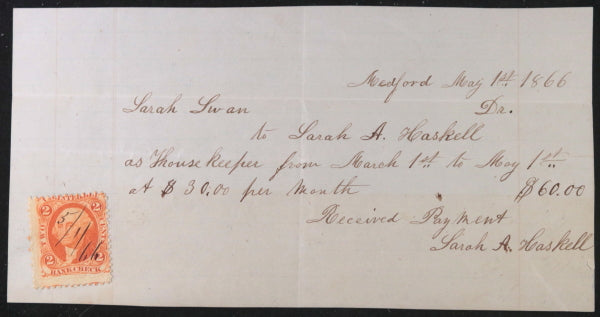 Medford May 1st 1866
Sarah Swan Dr.
to Sarah A. Haskell
as Housekeeper from March 1st to May 1st
at $30.00 per Month $60.00
Received Payment
Sarah A. Haskell
2 2
5/1/66
2 2
BANK CHECK